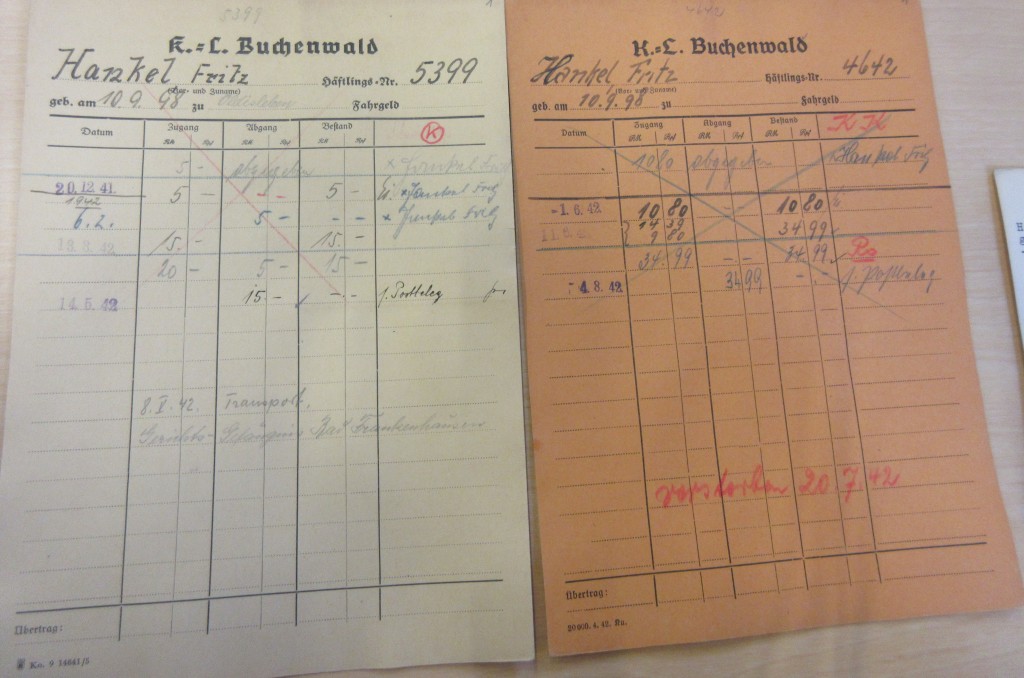 5399
K.=L. Buchenwald
Hankel Fritz
Häftlings-Nr. 5399
(Vor- und Zuname)
geb. am 10.9.98 zu Oldisleben Fahrgeld
Datum Zugang Abgang Bestand
RM Rpf RM Rpf RM Rpf K
5 - abgegeben x Hankel Fritz
20.12.41 5 - - - 5 - x Hankel Fritz
1942
6.2. 5 - - - x Hankel Fritz
15. - 15. -
20 - 5 - 15 -
14.5.42 15 - - . - f. Postbeleg
8.V.42. Transport.
Gerichts-Gefängnis Bad Frankenhausen
Übertrag:
Ko. 9 14641/5
4642
K.=L. Buchenwald
Hankel, Fritz
Häftlings-Nr. 4642
(Vor- und Zuname)
geb. am 10.9.98 zu Fahrgeld
Datum Zugang Abgang Bestand
RM Rpf RM Rpf RM Rpf
1080 abgegeben - x Hankel Fritz
-1.6.42 10 80 - - 10 80
14 39 34 99
9 80
34 99 - - 34 99
-4.8.42 34 99 - . f. Postbeleg
verstorben 20 7.42
Übertrag: